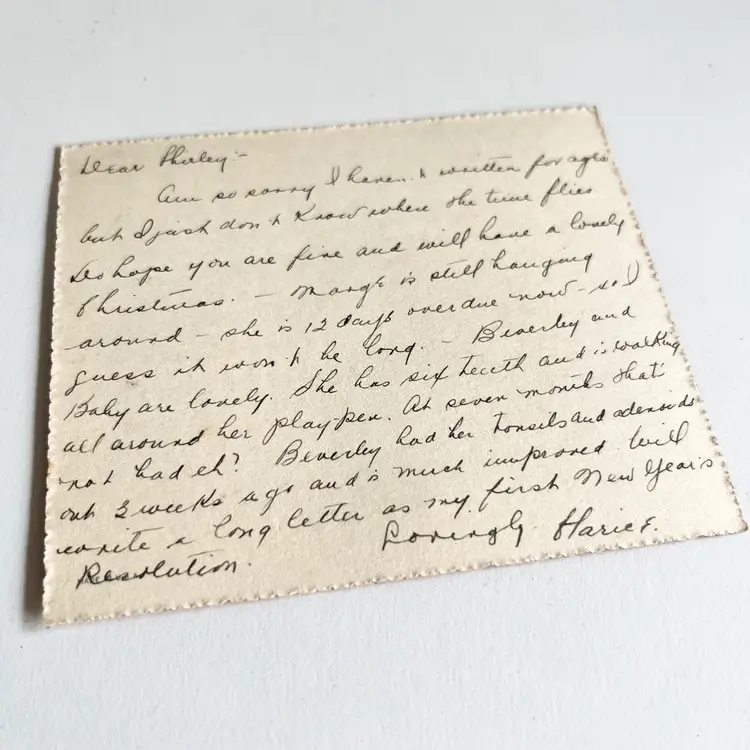 Dear Shirley:-
Am so sorry I haven't written for ages
but I just don't know where the time flies
Do hope you are fine and will have a lovely
Christmas. - Marge is still hanging
around - she is 12 days overdue now - so I
guess it won't be long. - Beverley and
Baby are lovely. She has six teeth and is walking
all around her play-pen. At seven months that's
not bad eh? Beverley had her tonsils and adenoids
out 3 weeks ago and is much improved. Will
write a long letter as my first New Year's
Resolution. Lovingly